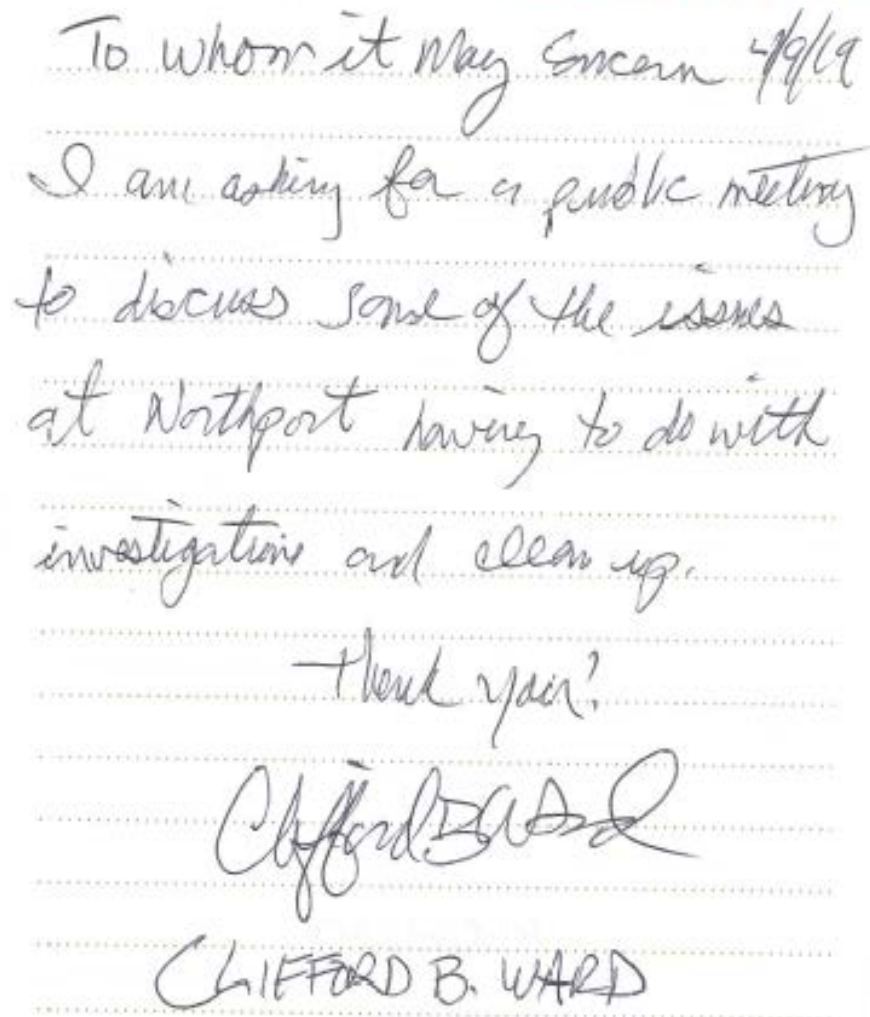 To whom it May Concern 4/9/19
I am asking for a public meeting
to discuss some of the issues
at Northport having to do with
investigations and clean up.
Thank you!
Clifford B Ward
CLIFFORD B. WARD